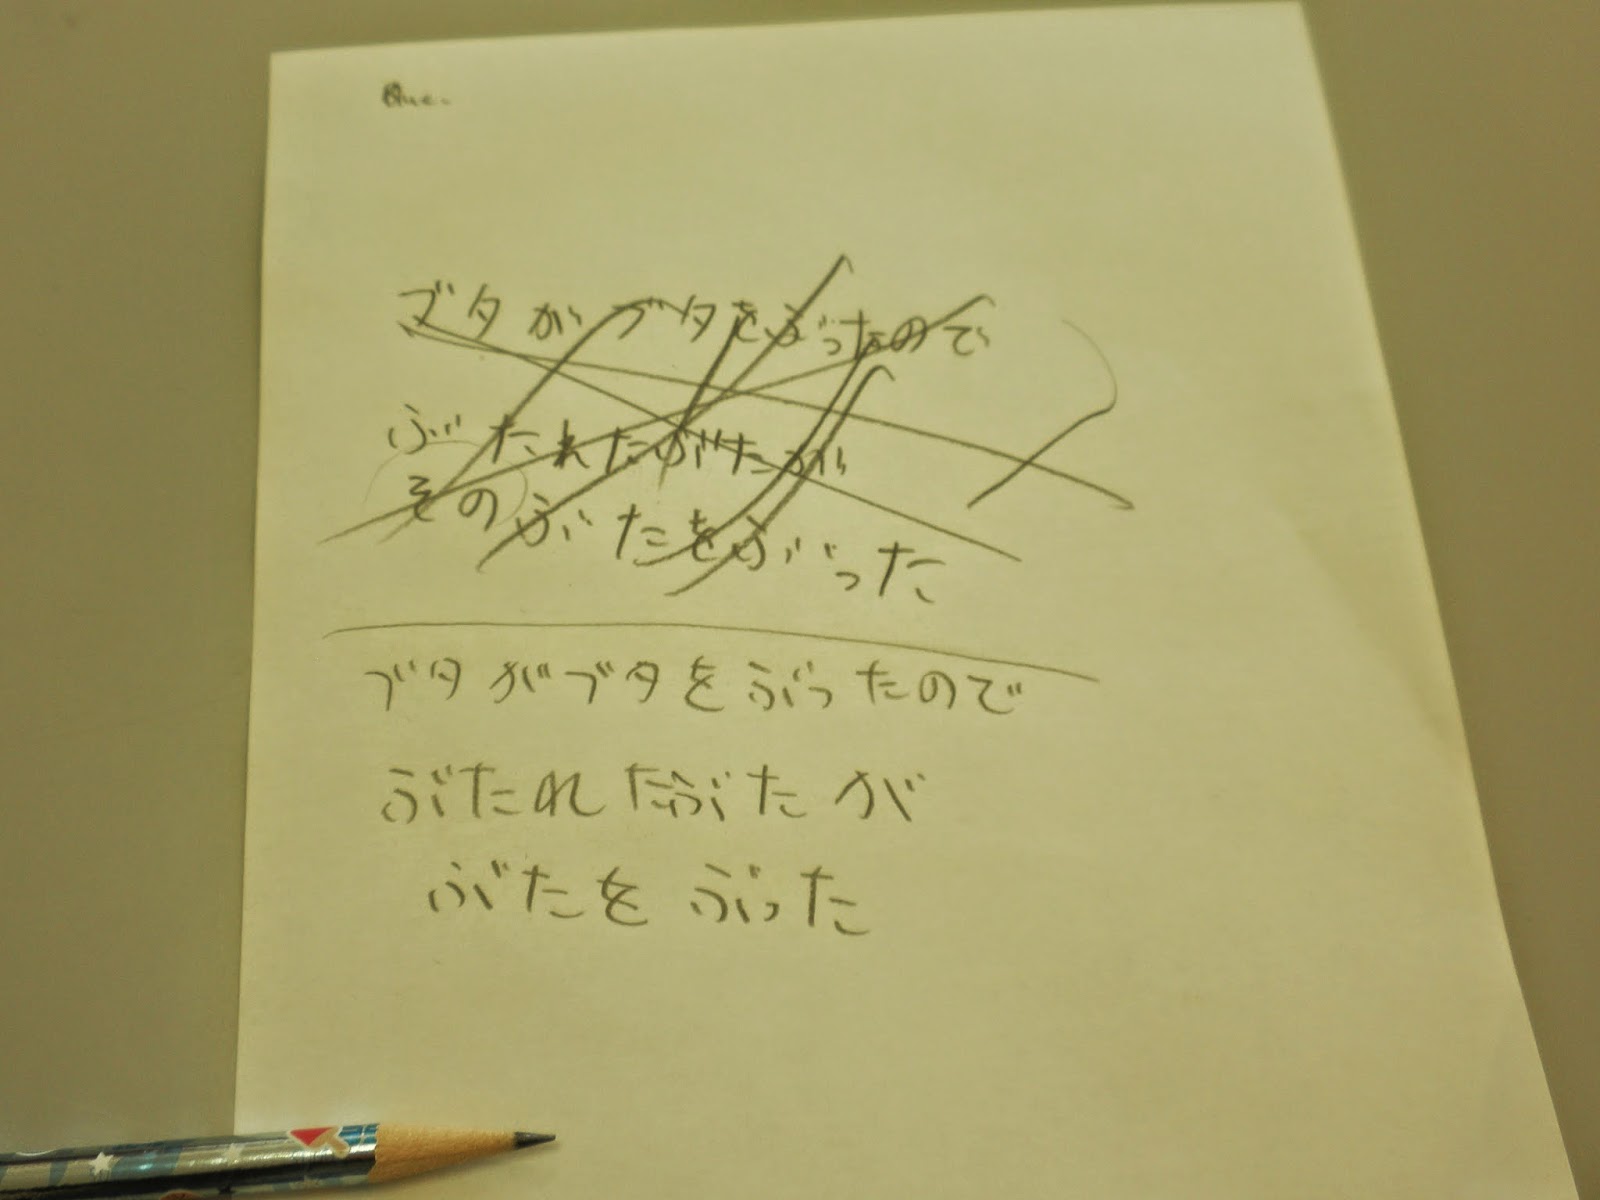 ブタがブタをぶったので
ぶたれたぶたが
そのぶたをぶった
ブタがブタをぶったので
ぶたれたぶたが
ぶたをぶった